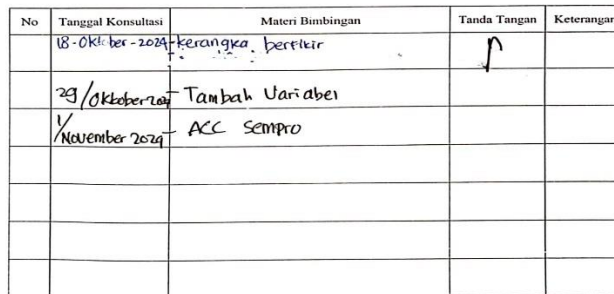 No Tanggal Konsultasi Materi Bimbingan Tanda Tangan Keterangan
18-Oktober-2024 - kerangka berfikir
29/Oktober 2024 - Tambah Variabel
1/November 2024 - ACC Sempro